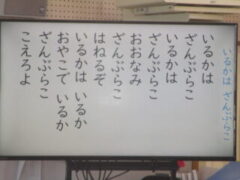 いるかは ざんぶらこ
いるかは
ざんぶらこ
いるかは
ざんぶらこ
おおなみ
ざんぶらこ
はねるぞ
いるかは いるか
おやこで いるか
ざんぶらこ
こえろよ